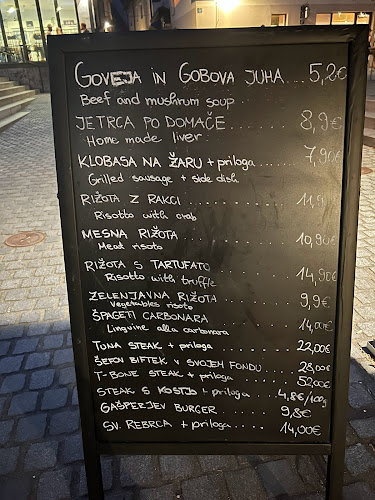 GOVEJA IN GOBOVA JUHA.... 5,2€
Beef and mushrum soup.
JETRCA PO DOMAČE........ 8,9€
Home made liver
KLOBASA NA ŽARU + priloga.... 7,90€
Grilled sausage + side dish
RIŽOTA Z RAKCI..........
Risotto with crab
MESNA RIŽOTA......... 10,90€
Meat risoto
RIŽOTA S TARTUFATO...... 14,90€
Risotto with truffle
ZELENJAVNA RIŽOTA....... 9,9€
Vegetables risoto
ŠPAGETI CARBONARA....... 14,00€
Linguine alla carbonara
TUNA STEAK + priloga....... 22,00€
ŠEFOV BIFTEK V SVOJEM FONDU.. 28,00€
T-BONE STEAK + priloga....... 52,00€
STEAK S KOSTJO + priloga.. 4,8€/100g
GAŠPERJEV BURGER........ 9,8€
SV. REBRCA + priloga....... 14,00€